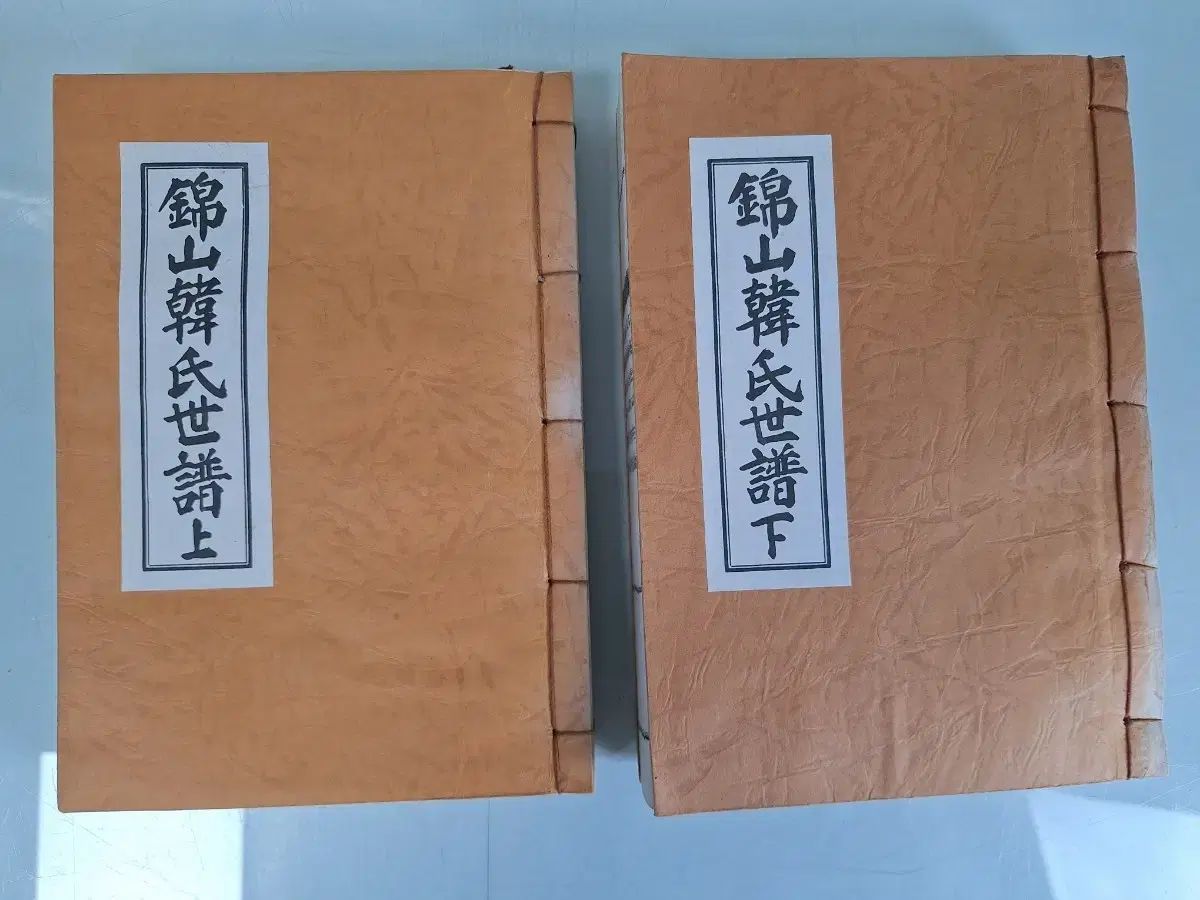 錦山韓氏世譜上
錦山韓氏世譜下